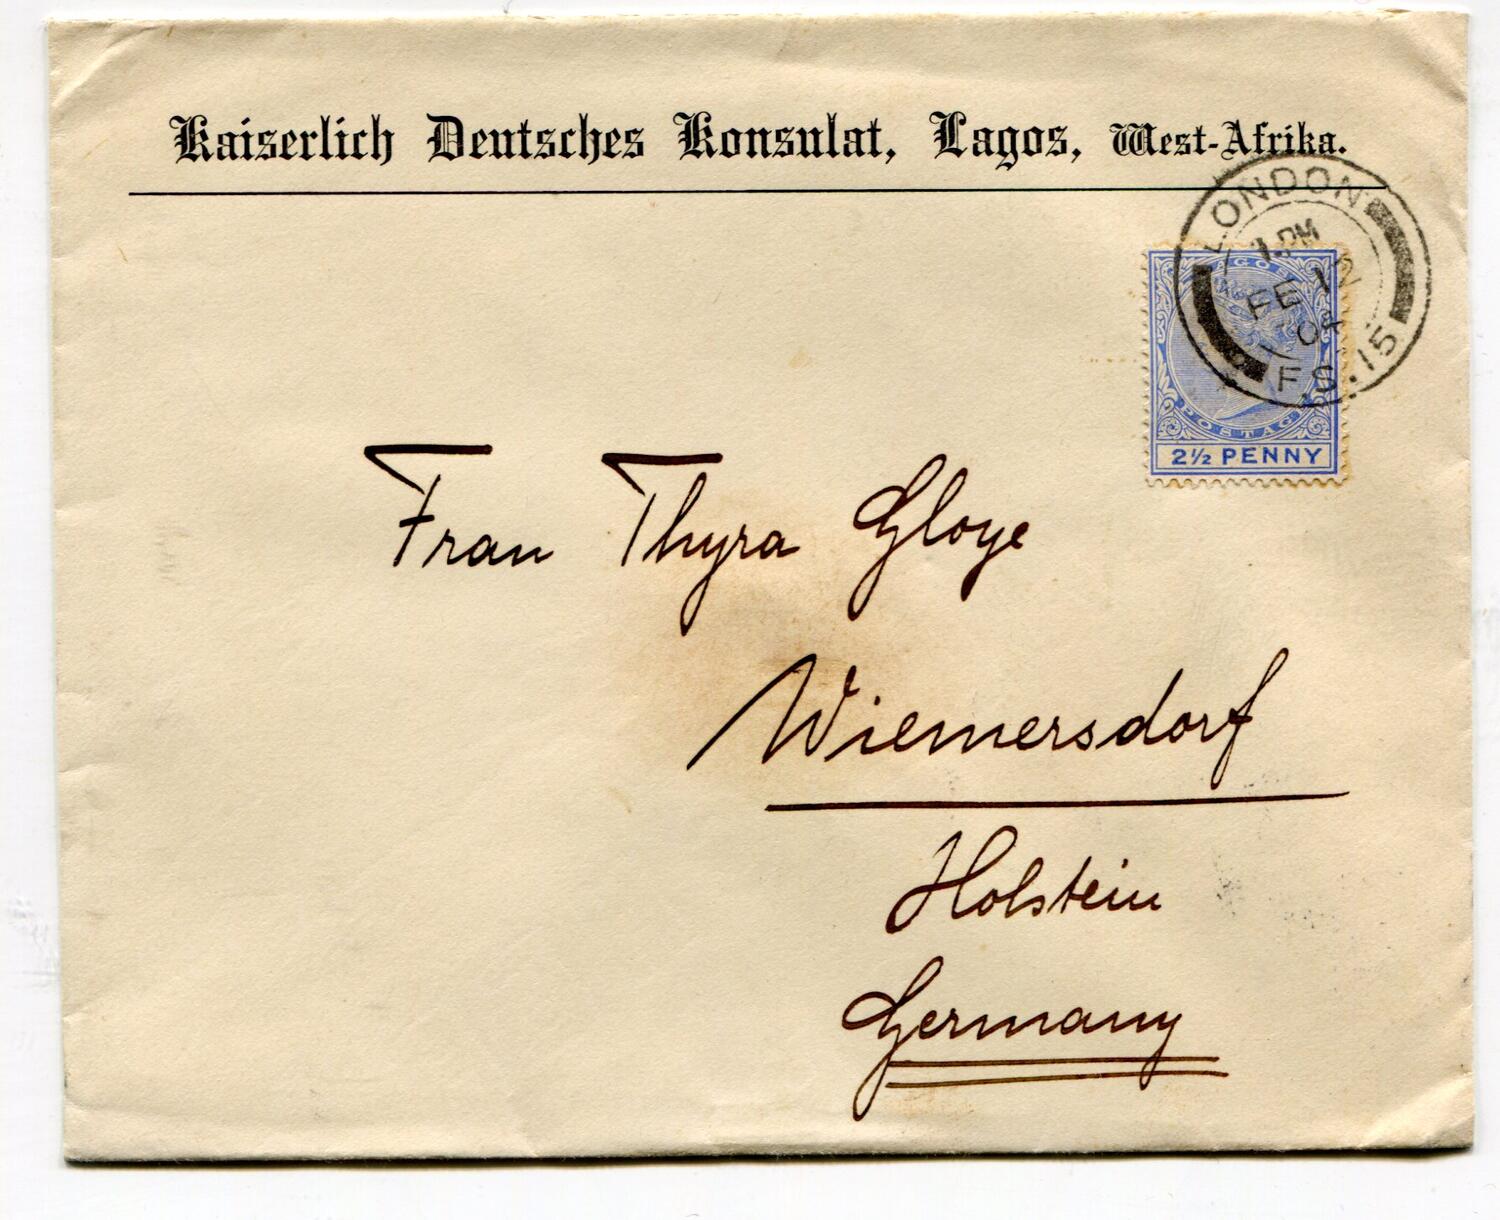 Kaiserlich Deutsches Konsulat, Lagos, West-Afrika.
LONDON
1.PM
FE 12
04
F.S.15
LAGOS
POSTAGE
2½ PENNY
Frau Thyra Gloye
Wiemersdorf
Holstein
Germany